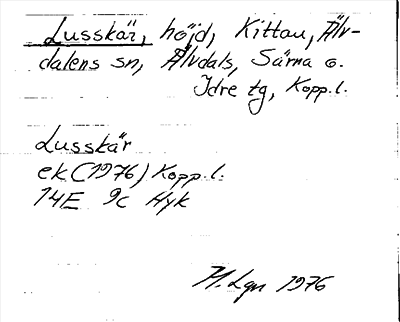 Lusskär, höjd, Kittau, Älv-
dalens sn, Älvdals, Särna o.
Idre tg, Kopp.l.
Lusskär
ek (1976) Kopp.l.
14E 9c Hyk
M. Lgn 1976